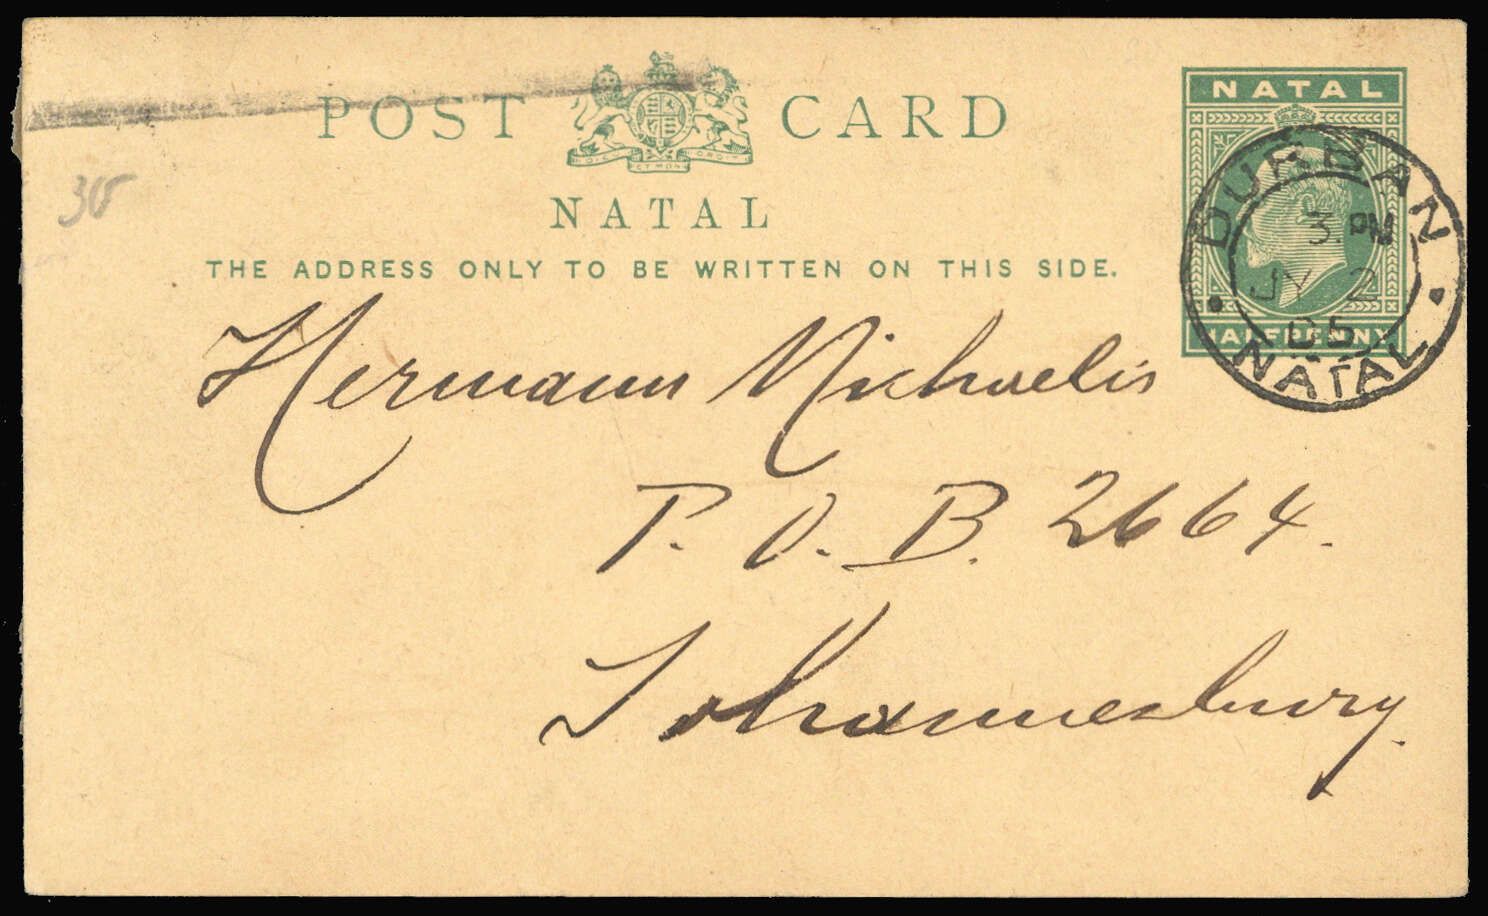 POST CARD
NATAL
THE ADDRESS ONLY TO BE WRITTEN ON THIS SIDE.
NATAL
HALFPENNY
DURBAN
3. PM
JY 2
05
NATAL
Hermann Michaelis
P. O. B. 2664.
Johannesburg.